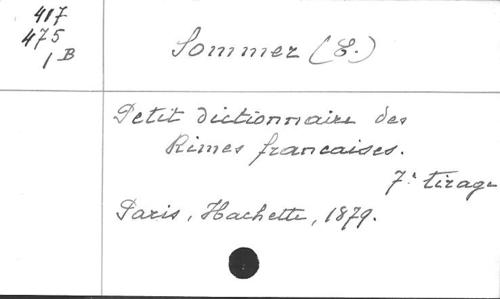 417
475
1 B
Sommer (E.)
Petit dictionnaire des
Rimes francaises.
7e tirage
Paris, Hachette, 1879.